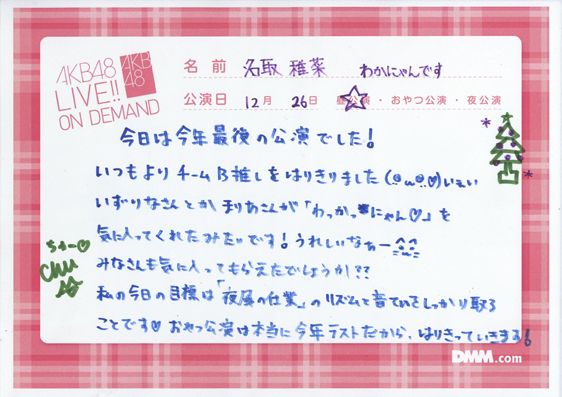 AKB48
LIVE!!
ON DEMAND
AKB
48
名前 名取 稚菜 わかにゃんです
公演日 12月 26日 昼公演・おやつ公演・夜公演
今日は今年最後の公演でした!
いつもよりチームB推しをはりきりました(@ω@♡)いぇい
いずりなさんとか まりあさんが「わっかっにゃん♡」を
気に入ってくれたみたいです!うれしいなぁー
みなさんも気に入ってもらえたでしょうか??
私の今日の目標は「夜風の仕業」のリズムと音ていをしっかり取る
ことです♡おやつ公演は本当に今年ラストだから、はりきっていきまする!
ちゅー♡
chu
DMM.com